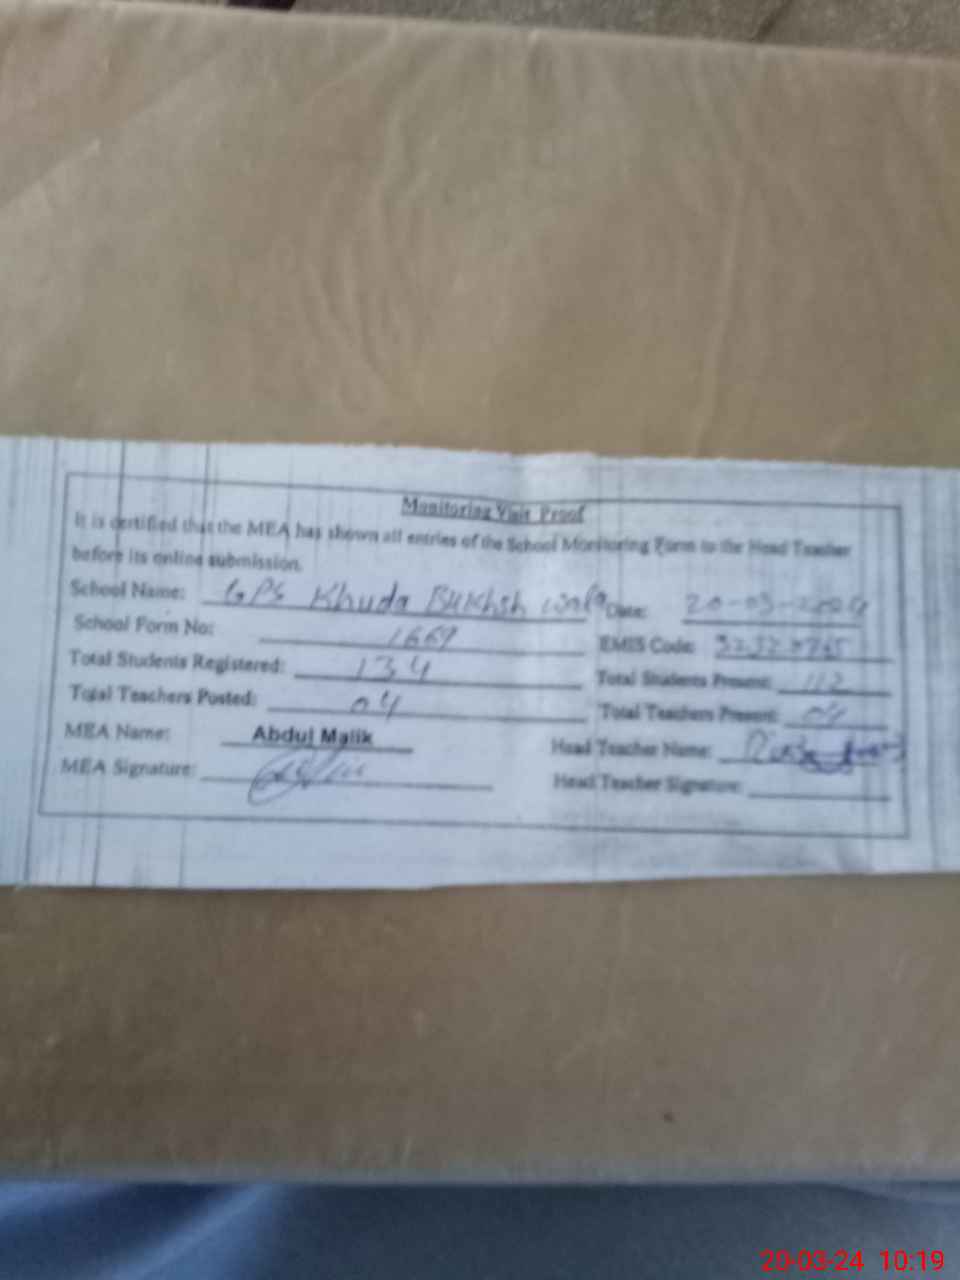 Monitoring Visit Proof
It is certified that the MEA has shown all entries of the School Monitoring Form to the Head Teacher
before its online submission.
School Name: GPS Khuda Bukhsh wala Date: 20-03-2024
School Form No: 1669 EMIS Code:
Total Students Registered: 134 Total Students Present: 112
Total Teachers Posted: 04 Total Teachers Present: 04
MEA Name: Abdul Malik Head Teacher Name:
MEA Signature: Head Teacher Signature:
20-03-24 10:19